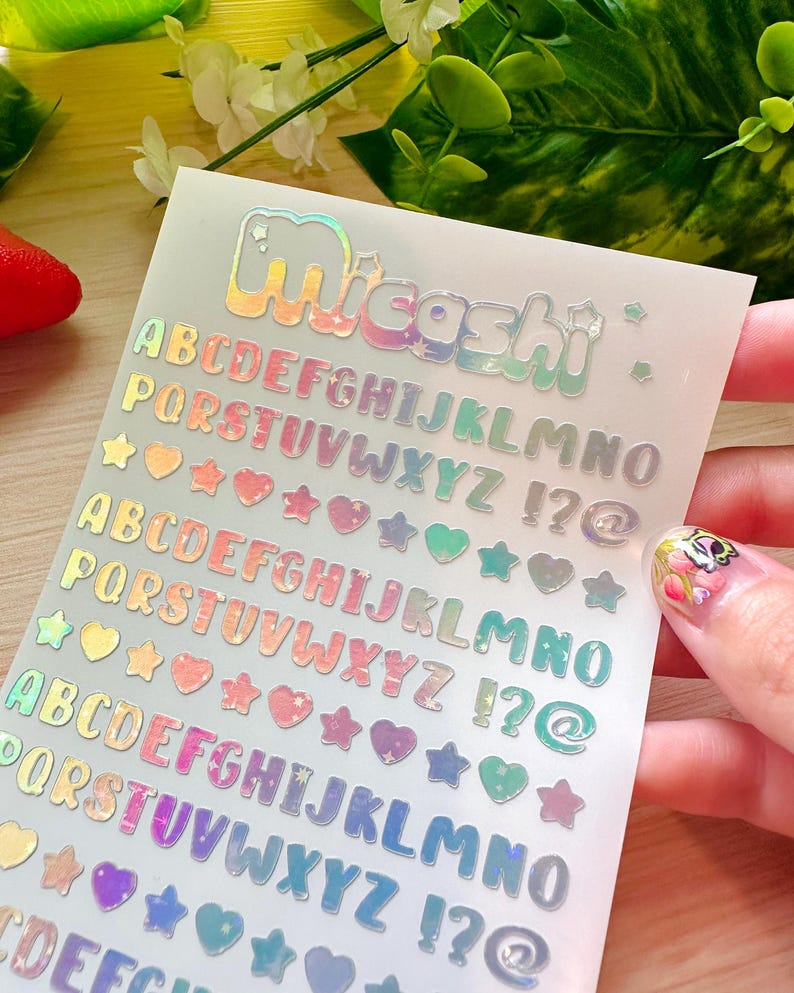 micashi
ABCDEFGHIJKLMNO
PQRSTUVWXYZ !?@
ABCDEFGHIJKLMNO
PQRSTUVWXYZ !?@
ABCDEFGHIJKLMNO
PQRSTUVWXYZ !?@
CDEFGHIJKL